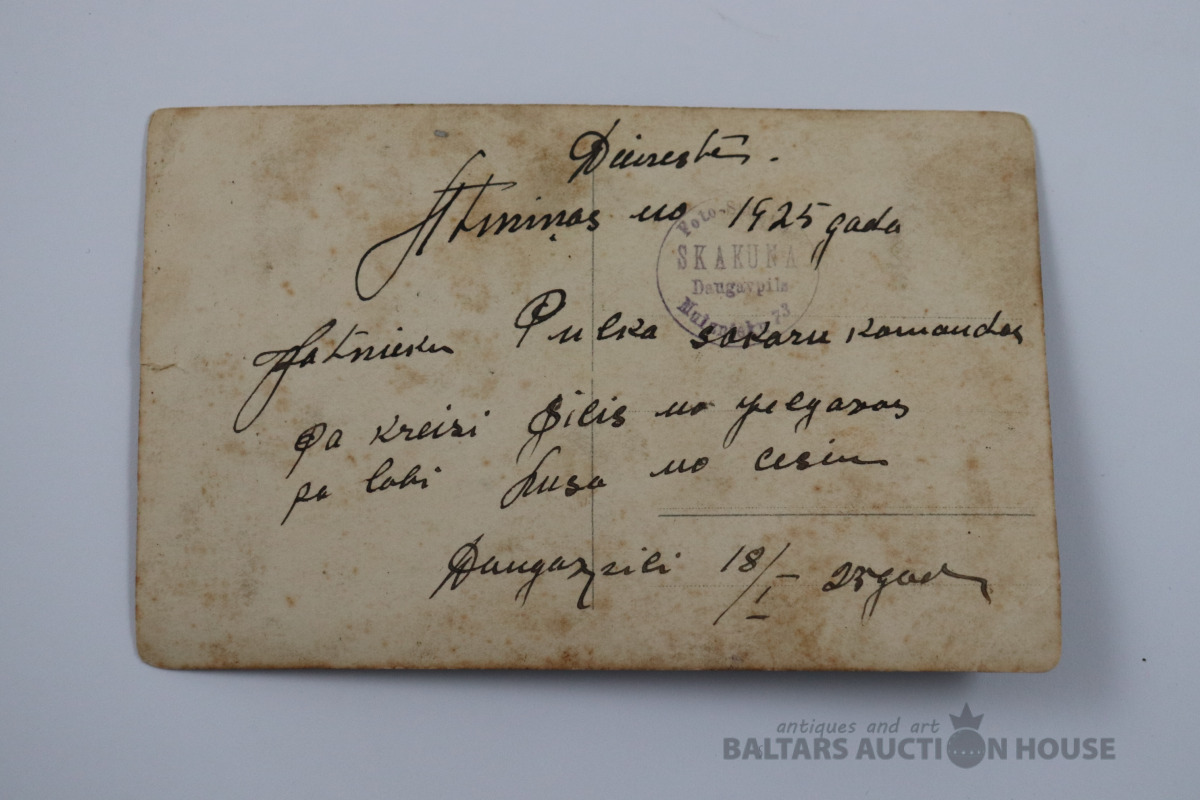 Dienestā.
Atmiņas no 1925 gada
Foto-
SKAKUNA
Daugavpils
73
Pulka sakaru komandas
pa kreisi Silis no Jelgavas
pa labi no Cesim
Daugavpili 18/I 25 gad
antiques and art
BALTARS AUCTION HOUSE